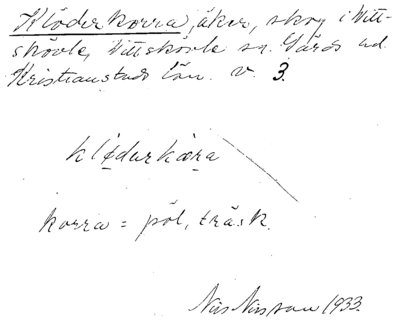 Klöderkorra, åker, skog i Witt-
skövle, Wittskövle sn. Gärds hd.
Kristianstads län. v. 3.
klødurkæra
korra = pöl, träsk.
Nils Nilsson 1933.